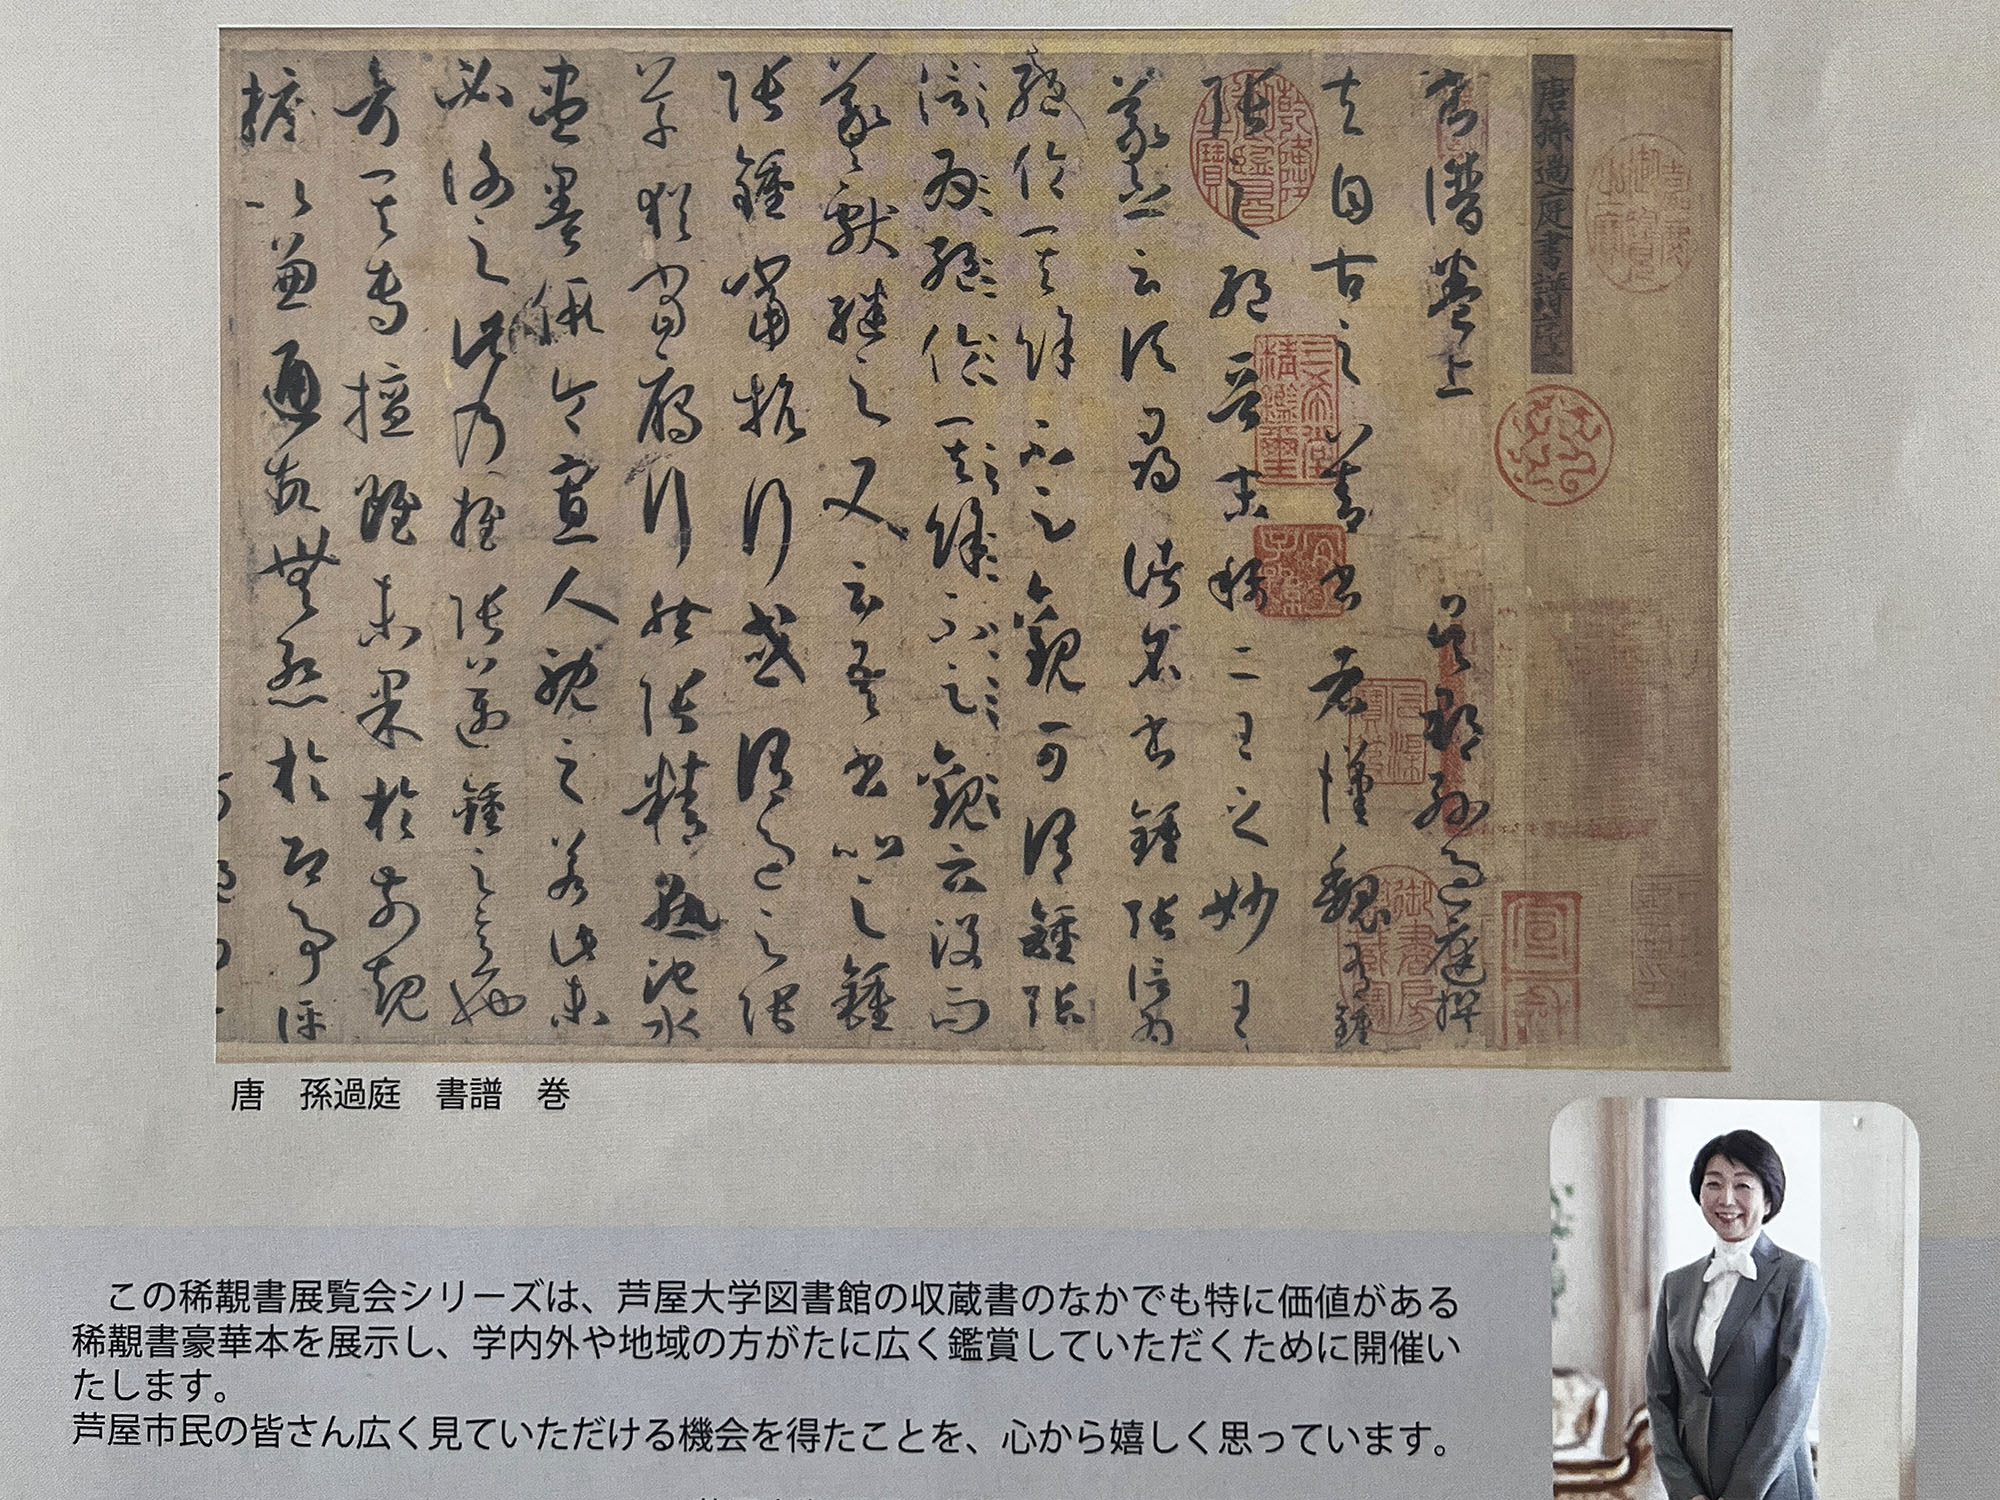 唐孫過庭書譜序
書譜卷上 吳郡孫過庭撰
夫自古之善書者漢魏有鍾
張之絕晉末稱二王之妙王
羲之云頃尋諸名書鍾張信為
絕倫其餘不足觀可謂鍾張
信為絕倫其餘不足觀云沒而
羲獻繼之又云吾書比之鍾
張鍾當抗行或謂過之張
草猶當鴈行然張精熟池水
盡墨假令寡人耽之若此未
必謝之此乃推張邁鍾之意也
考其專擅雖未果於前規
摭以兼通故無慙於即事評
唐　孫過庭　書譜　巻
この稀覯書展覧会シリーズは、芦屋大学図書館の収蔵書のなかでも特に価値がある
稀覯書豪華本を展示し、学内外や地域の方がたに広く鑑賞していただくために開催い
たします。
芦屋市民の皆さん広く見ていただける機会を得たことを、心から嬉しく思っています。